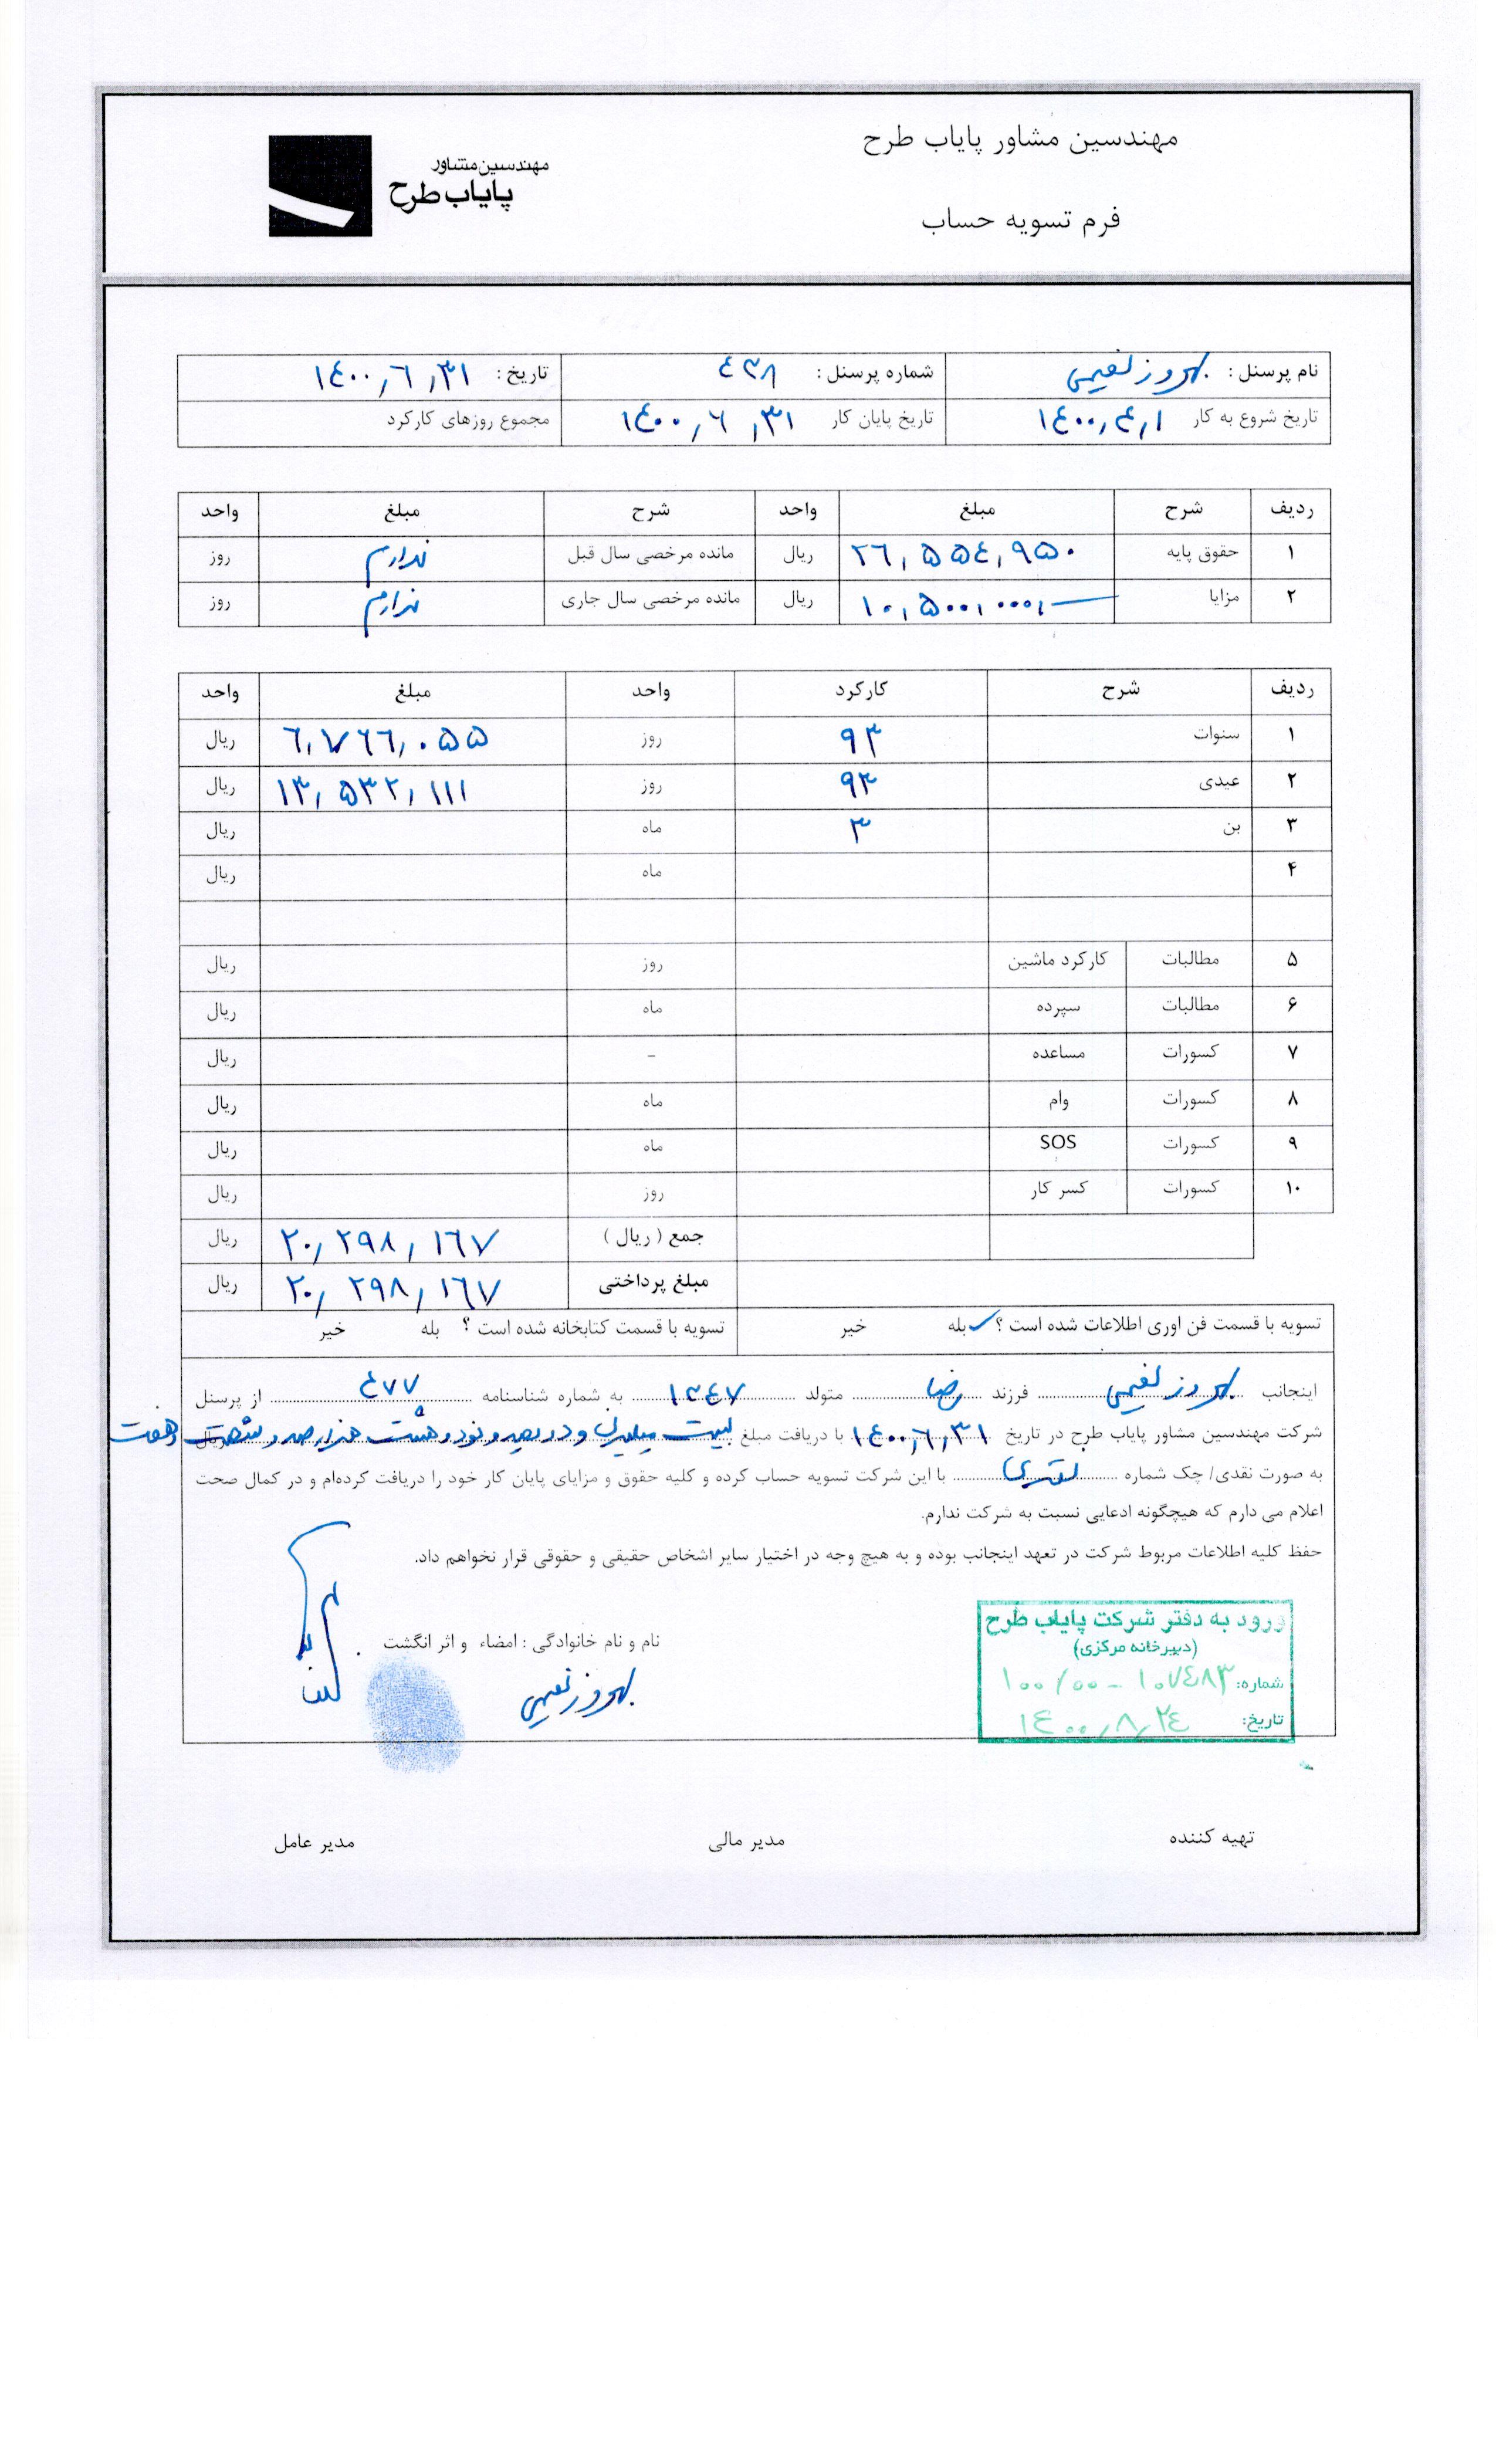 مهندسین مشاور پایاب طرح
مهندسین مشاور
پایاب طرح
فرم تسویه حساب
نام پرسنل : بهروز نعیمی شماره پرسنل : ٤٣٨ تاریخ : ١٤٠٠,٦,٣١
تاریخ شروع به کار ١٤٠٠,٤,١ تاریخ پایان کار ١٤٠٠,٦,٣١ مجموع روزهای کارکرد
ردیف شرح مبلغ واحد شرح مبلغ واحد
۱ حقوق پایه ٢٦,٥٥٤,٩٥٠ ریال مانده مرخصی سال قبل ندارم روز
۲ مزایا ١٠,٥٠٠,٠٠٠,— ریال مانده مرخصی سال جاری ندارم روز
ردیف شرح کارکرد واحد مبلغ واحد
۱ سنوات ٩٣ روز ٦,٧٦٦,٠٥٥ ریال
۲ عیدی ٩٣ روز ١٣,٥٣٢,١١١ ریال
۳ بن ٣ ماه ریال
۴ ماه ریال
۵ مطالبات کارکرد ماشین روز ریال
۶ مطالبات سپرده ماه ریال
۷ کسورات مساعده – ریال
۸ کسورات وام ماه ریال
۹ کسورات SOS ماه ریال
۱۰ کسورات کسر کار روز ریال
جمع ( ریال ) ٢٠,٢٩٨,١٦٧ ریال
مبلغ پرداختی ٢٠,٢٩٨,١٦٧ ریال
تسویه با قسمت فن اوری اطلاعات شده است ؟ ✓ بله خیر تسویه با قسمت کتابخانه شده است ؟ بله خیر
اینجانب بهروز نعیمی فرزند رضا متولد ١٣٤٧ به شماره شناسنامه ٤٧٧ از پرسنل
شرکت مهندسین مشاور پایاب طرح در تاریخ ١٤٠٠,٦,٣١ با دریافت مبلغ بیست میلیون و دویصد و نود و هشت هزار صد و شصت و هفت ریال
به صورت نقدی/ چک شماره نقدی با این شرکت تسویه حساب کرده و کلیه حقوق و مزایای پایان کار خود را دریافت کرده‌ام و در کمال صحت
اعلام می دارم که هیچگونه ادعایی نسبت به شرکت ندارم.
حفظ کلیه اطلاعات مربوط شرکت در تعهد اینجانب بوده و به هیچ وجه در اختیار سایر اشخاص حقیقی و حقوقی قرار نخواهم داد.
ورود به دفتر شرکت پایاب طرح
(دبیرخانه مرکزی)
شماره: ١٠٠/٠٠ – ١٠٧٤٨٣
تاریخ: ١٤٠٠,٨,٢٤
نام و نام خانوادگی : امضاء و اثر انگشت
بهروز نعیمی
تهیه کننده مدیر مالی مدیر عامل